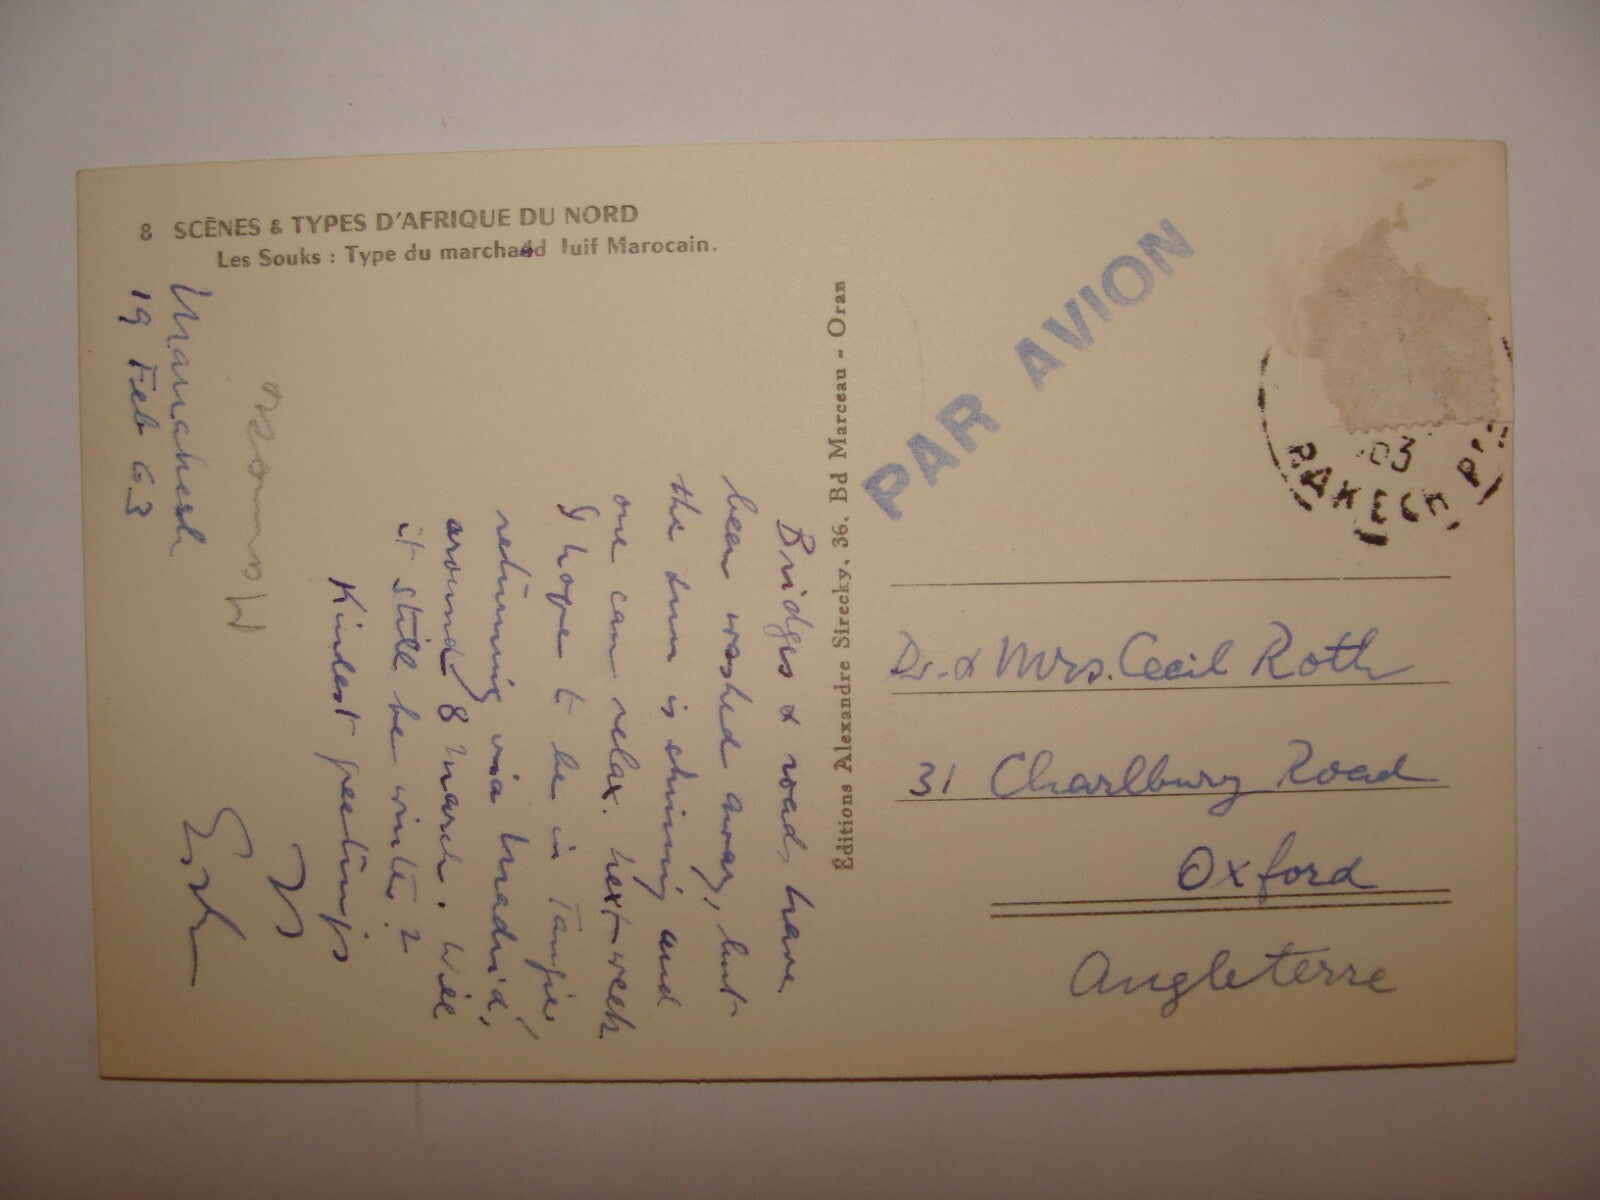 8 SCÈNES & TYPES D'AFRIQUE DU NORD
Les Souks : Type du marchand Juif Marocain.
Marrakesh
19 Feb 63
Bridges & roads have
been washed away, but
the sun is shining and
one can relax. Next week
I hope to be in Tangier,
returning via Madrid,
around 8 March. Will
it still be winter?
Kindest greetings
Morocco
Éditions Alexandre Sirecky, 36, Bd Marceau - Oran
PAR AVION
Dr. & Mrs. Cecil Roth
31 Charlbury Road
Oxford
Angleterre